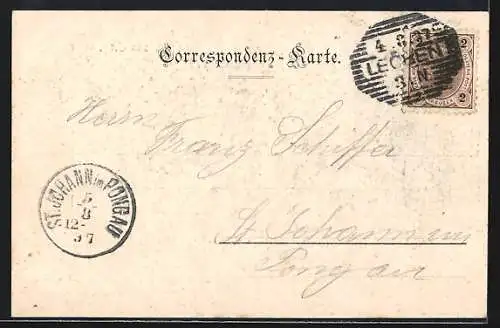 Correspondenz-Karte.
4. 8. 97
LEOBEN 1
3. N.
2 2
Herrn Franz Schiffer
ST. JOHANN im PONGAU
5
8
12-
97
St Johann im
Pongau